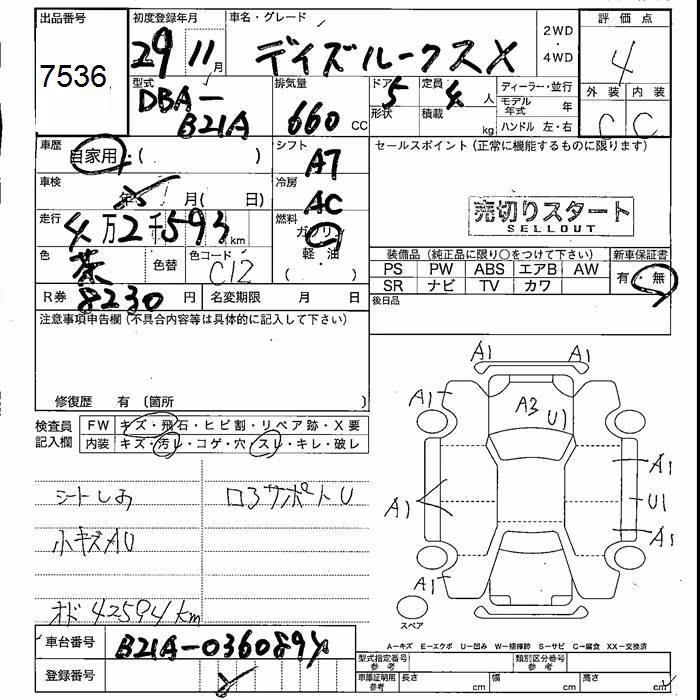 出品番号
7536
初度登録年月
29 11月
車名・グレード
デイズルークスX
2WD
・
4WD
評価点
4
外装 内装
C C
型式
DBA-
B21A
排気量
660 CC
ドア 5
形状
定員 4 人
積載 kg
ディーラー・並行
モデル年式 年
ハンドル 左・右
車歴
自家用・( )
シフト
AT
セールスポイント(正常に機能するものに限ります)
売切りスタート
SELLOUT
車検
年 月( 日)
冷房
AC
走行
4万2千593km
燃料
ガソリン
軽・油
( ・ )
色
茶
色替
色コード
C12
装備品(純正品に限り○をつけて下さい)
PS PW ABS エアB AW
SR ナビ TV カワ
新車保証書
有・無
R券 8230円
名変期限 月 日
後日品
注意事項申告欄(不具合内容等は具体的に記入して下さい)
修復歴 有 (箇所 )
検査員
記入欄
FW キズ・飛石・ヒビ割・リペア跡・X要
内装 キズ・汚レ・コゲ・穴・スレ・キレ・破レ
シートしお
小キズAU
オド42594km
ロアサポートU
A1 A1
A1
A3
U1
A1
A1
U1
A1
A1
スペア
A-キズ E-エクボ U-凹み W-補修跡 S-サビ C-腐食 XX-交換済
車台番号
B21A-0360894
登録番号
型式指定番号
参考
類別区分番号
参考
車庫証明用
参考
長さ cm
幅 cm
高さ cm